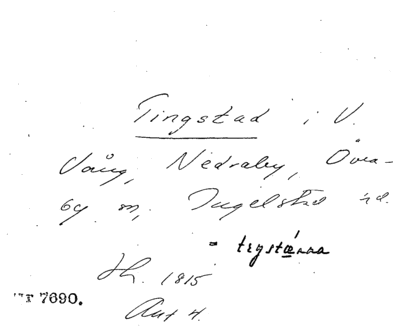 Tingstad i V.
Vång, Nedraby, Övra-
by m, Ingelstad hd.
= tıŋstǽnna
Jh. 1815
Ant 4.
7690.